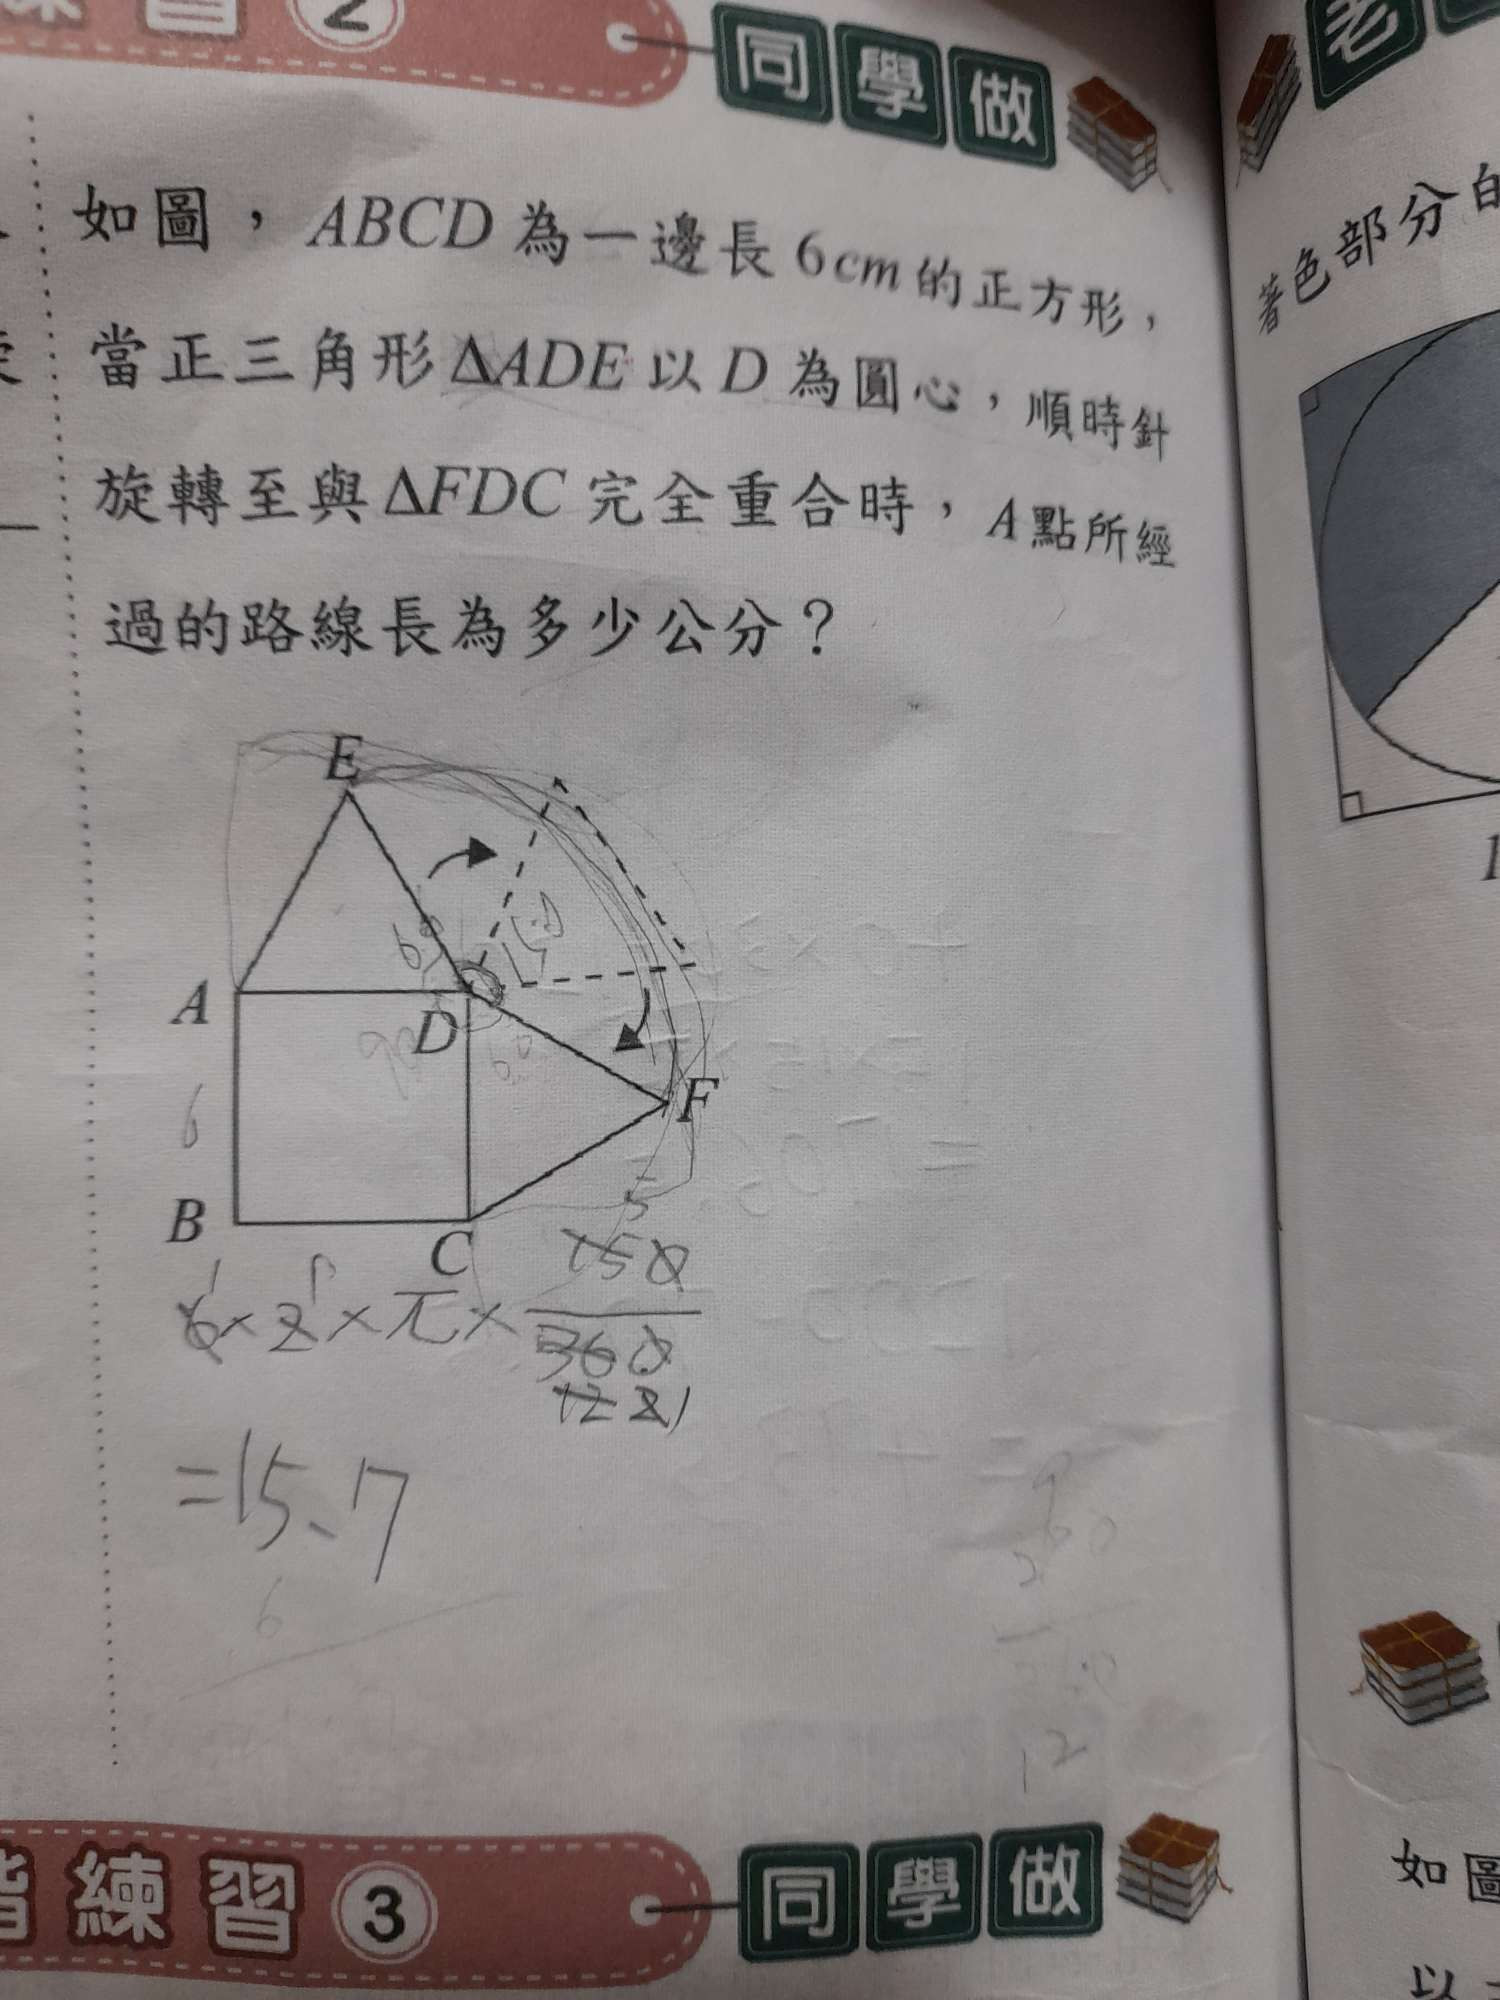 練習 2 同學做
如圖，ABCD 為一邊長 6cm 的正方形，
當正三角形 ΔADE 以 D 為圓心，順時針
旋轉至與 ΔFDC 完全重合時，A 點所經
過的路線長為多少公分？
著色部分的
E
60
150
A
D
90
60
F
6
B
C
5
150
6 × 2 × π ×
360
12
1
=15.7
6
12
階練習 3 同學做
如圖
以